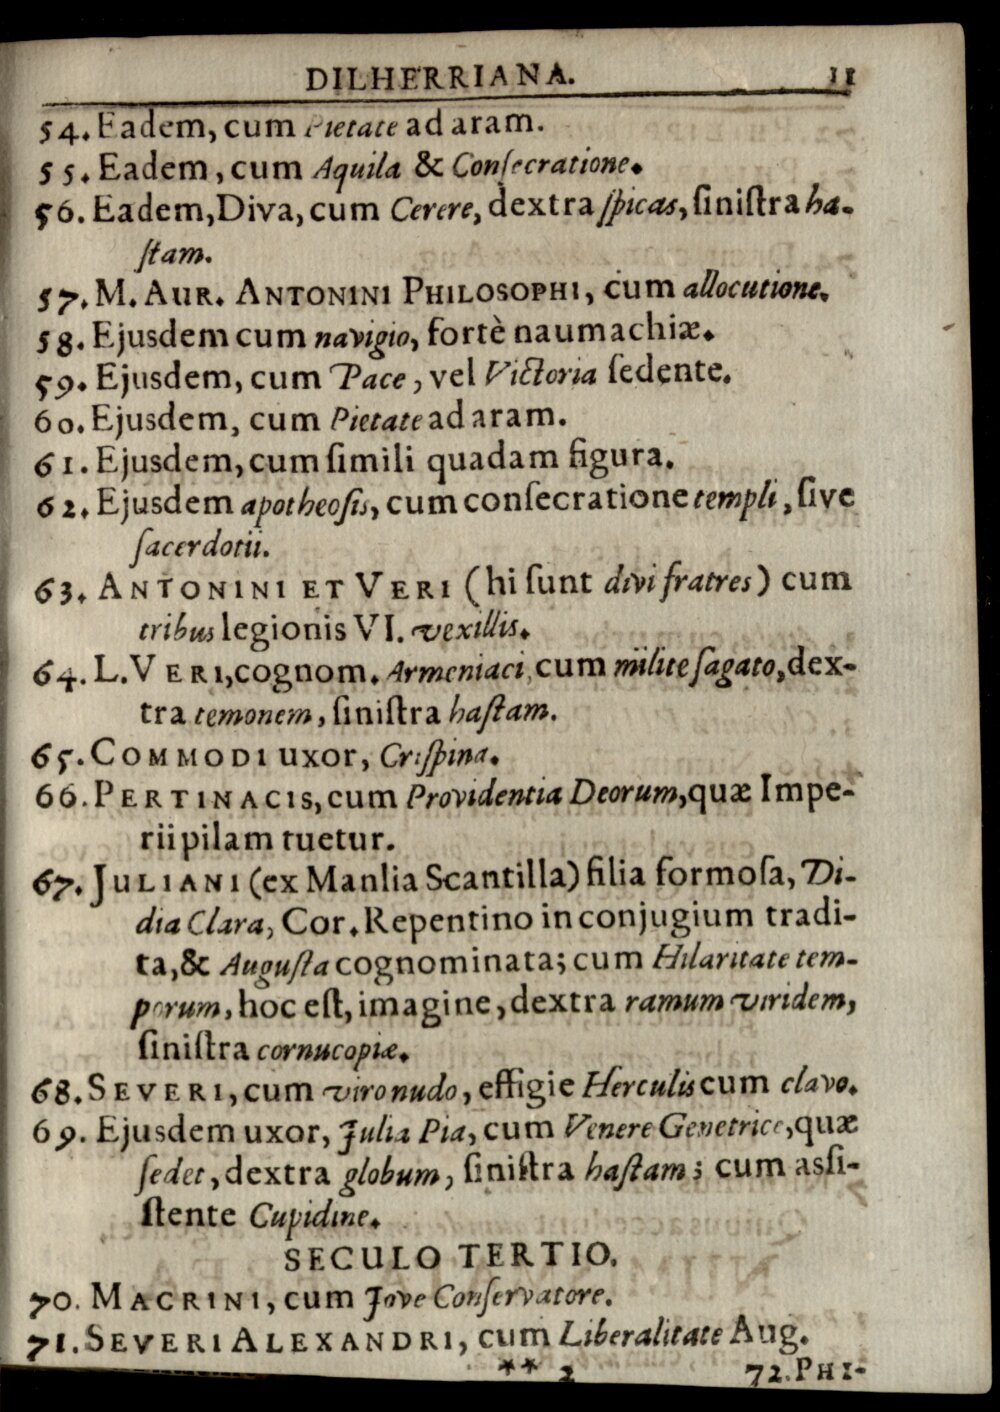 DILHERRIANA. 11
54. Eadem, cum Pietate ad aram.
55. Eadem, cum Aquila & Conſecratione.
56. Eadem, Diva, cum Cerere, dextra ſpicas, ſiniſtra ha-
ſtam.
57. M. AUR. ANTONINI PHILOSOPHI, cum allocutione.
58. Ejusdem cum navigio, fortè naumachiæ.
59. Ejusdem, cum Pace, vel Victoria ſedente.
60. Ejusdem, cum Pietate ad aram.
61. Ejusdem, cum ſimili quadam figura.
62. Ejusdem apotheoſis, cum conſecratione templi, ſive
ſacerdotii.
63. ANTONINI ET VERI (hi ſunt divi fratres) cum
tribus legionis VI. vexillis.
64. L. VERI, cognom. Armeniaci, cum milite ſagato, dex-
tra temonem, ſiniſtra haſtam.
65. COMMODI uxor, Criſpina.
66. PERTINACIS, cum Providentia Deorum, quæ Impe-
rii pilam tuetur.
67. JULIANI (ex Manlia Scantilla) filia formoſa, Di-
dia Clara, Cor. Repentino in conjugium tradi-
ta, & Auguſta cognominata; cum Hilaritate tem-
porum, hoc eſt, imagine, dextra ramum viridem,
ſiniſtra cornucopiæ.
68. SEVERI, cum viro nudo, effigie Herculis cum clavo.
69. Ejusdem uxor, Julia Pia, cum Venere Genetrice, quæ
ſedet, dextra globum, ſiniſtra haſtam; cum aſſi-
ſtente Cupidine.
SECULO TERTIO.
70. MACRINI, cum Jove Conſervatore.
71. SEVERI ALEXANDRI, cum Liberalitate Aug.
** 2 72. PHI-